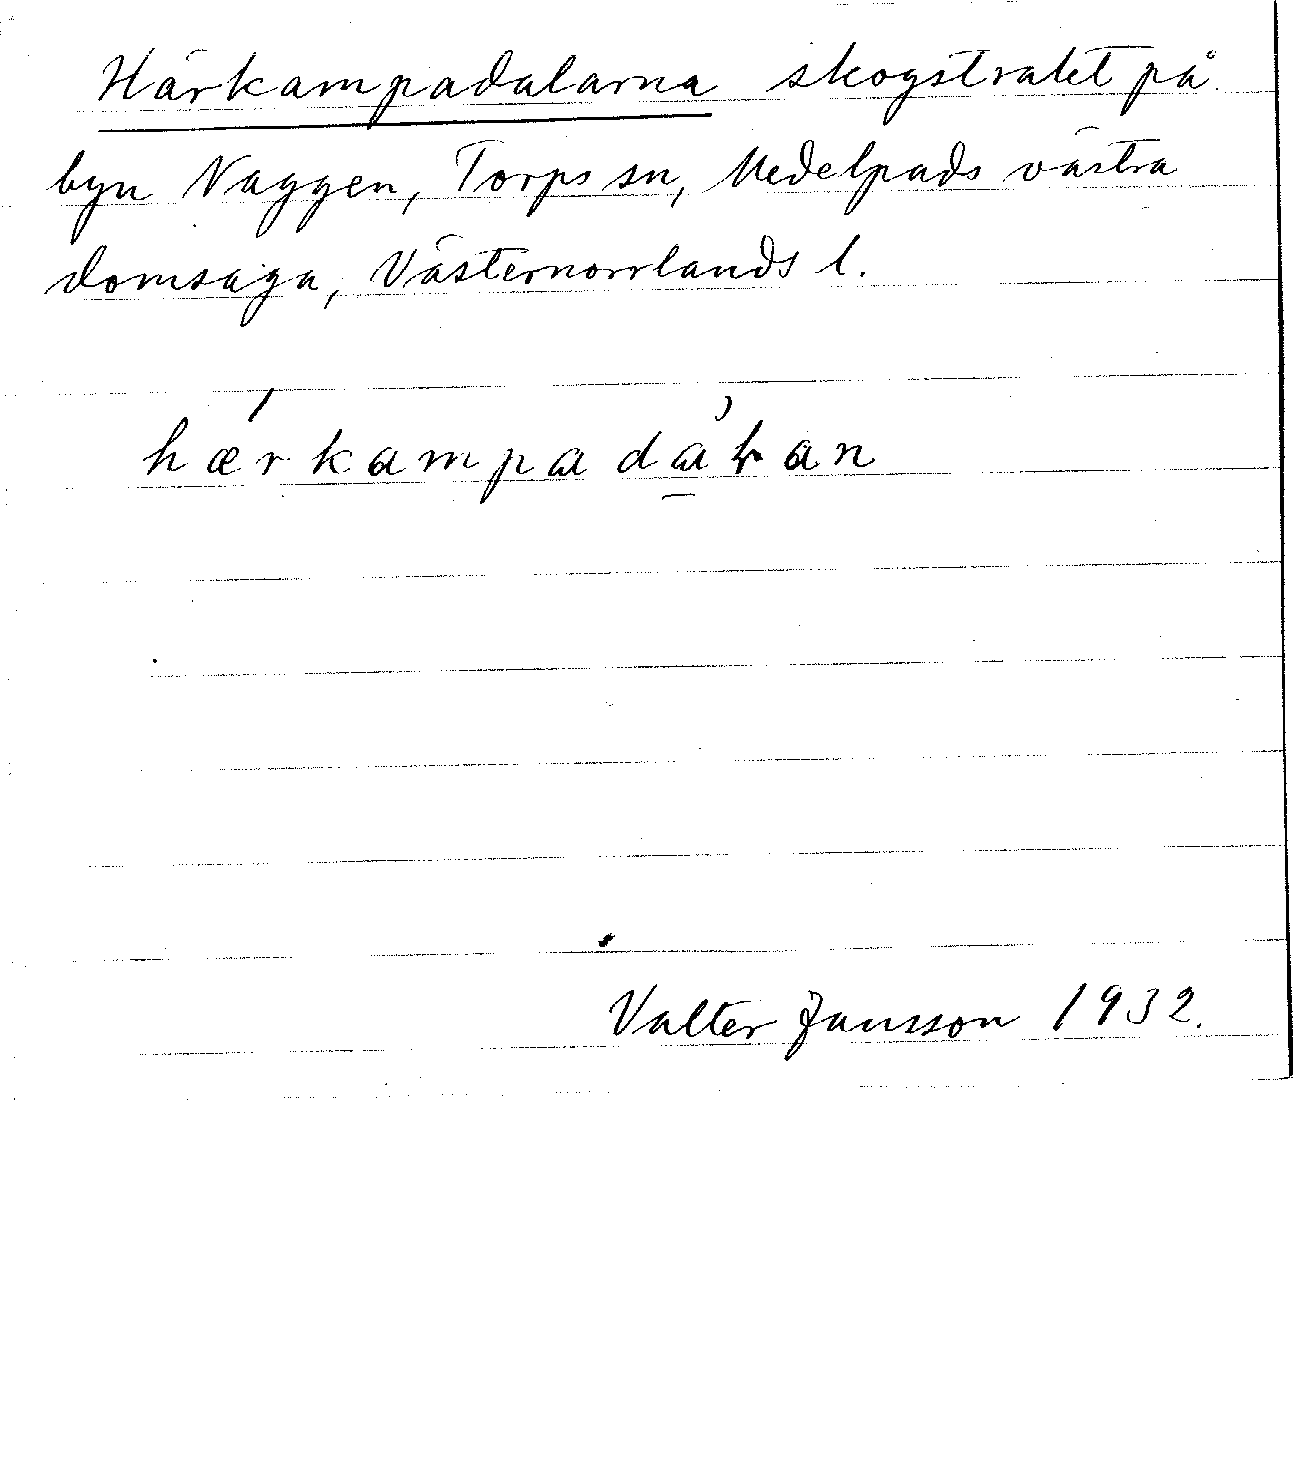 Härkampadalarna skogstraktet på
byn Naggen, Torps sn, Medelpads västra
domsaga, Västernorrlands l.
Valter Jansson 1932.